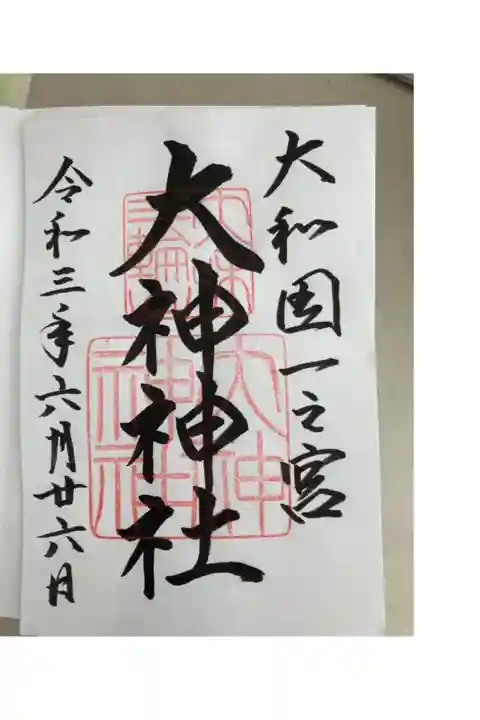 大和国一之宮
大神神社
令和三年六月廿六日
大神
神社